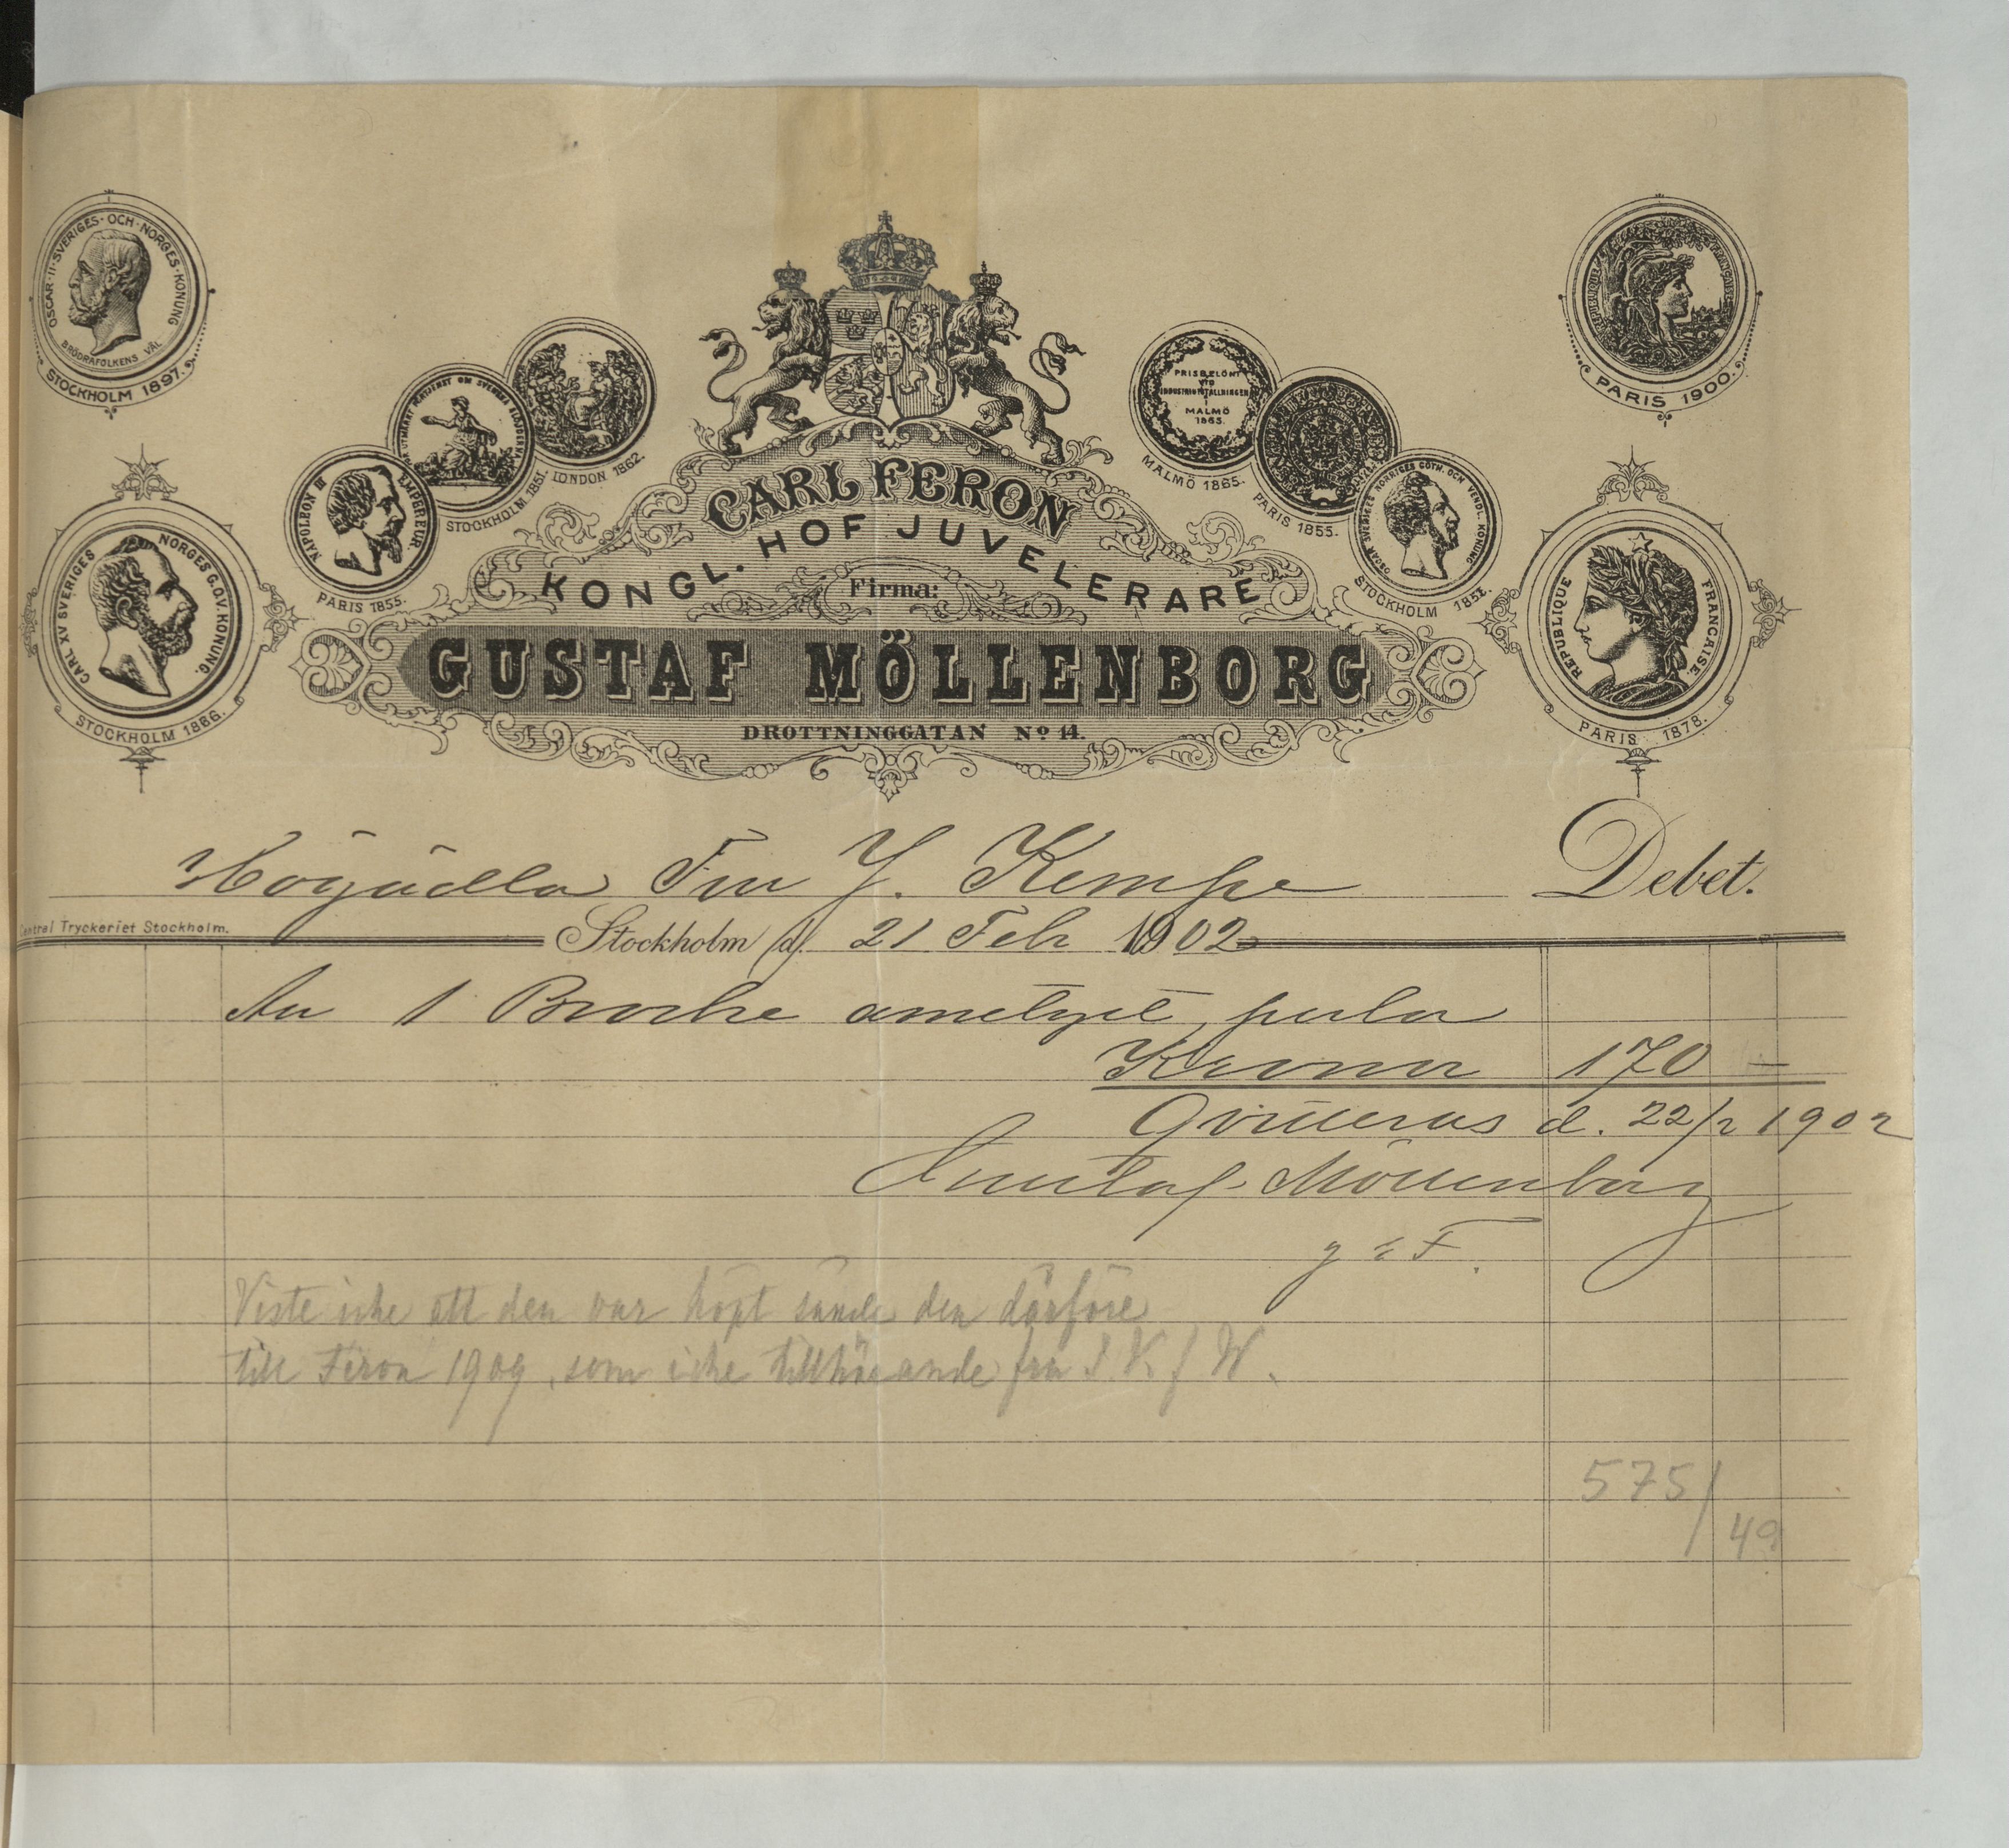 OSCAR·II·SVERIGES·OCH·NORGES·KONUNG
BRÖDRAFOLKENS VÄL
STOCKHOLM 1897.
CARL XV SVERIGES NORGES G.O.V. KONUNG.
STOCKHOLM 1866.
NAPOLEON III EMPEREUR.
PARIS 1855.
STOCKHOLM. 1851.
LONDON 1862.
PRISBELÖNT
VID
INDUSTRIUTSTÄLLNINGEN
I
MALMÖ
1865.
MALMÖ 1865.
PARIS 1855.
OSCAR SVERIGES NORRIGES GÖTH. OCH VENDL. KONUNG
STOCKHOLM
REPUBLIQUE FRANÇAISE
PARIS 1900.
REPUBLIQUE FRANCAISE.
PARIS 1878.
CARL FERON
KONGL. HOF JUVELERARE
Firma:
GUSTAF MÖLLENBORG
DROTTNINGGATAN No 14.
Högädla Fru J. Kempe Debet.
Central Tryckeriet Stockholm.
Stockholm d. 21 Feb 1902
An 1 Broche ametyst, perlor
Kronor 170 —
Qvitteras d. 22/2 1902
Gustaf Möllenborg
g. F.
Viste icke att den var köpt sände den därföre
till Feron 1909, som icke tillhörande fru J. K. f W.
575/
49